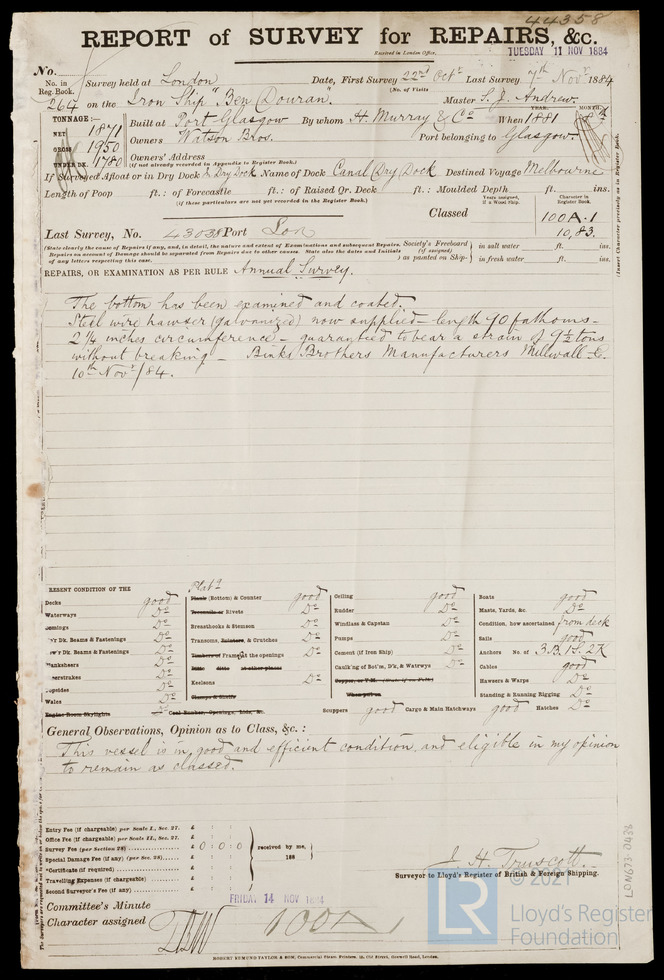 44358
REPORT of SURVEY for REPAIRS, &c.
Received in London Office, TUESDAY 11 NOV 1884
No.
No. in Reg. Book. Survey held at London Date, First Survey 22nd Octr Last Survey 7th Novr 1884
(No. of Visits
264 on the Iron Ship "Ben Douran". Master S. J. Andrew
TONNAGE:— YEAR. MONTH.
NET 1871 Built at Port Glasgow By whom H. Murray & Co When 1881
GROSS 1950 Owners Watson Bros. Port belonging to Glasgow
UNDER DK. 1780 Owners' Address
(If not already recorded in Appendix to Register Book.)
If Surveyed Afloat or in Dry Dock & Dry Dock Name of Dock Canal Dry Dock Destined Voyage Melbourne
Length of Poop ft.: of Forecastle ft.: of Raised Qr. Deck ft.: Moulded Depth ft. ins.
(If these particulars are not yet recorded in the Register Book.)
Years assigned, if a Wood Ship. Character in Register Book.
Classed 100A.1
Last Survey, No. 43038 Port Lon 10,83.
(State clearly the cause of Repairs if any, and, in detail, the nature and extent of Examinations and subsequent Repairs. Society's Freeboard in salt water ft. ins.
Repairs on account of Damage should be separated from Repairs due to other causes. State also the dates and Initials (if assigned)
of any letters respecting this case. as painted on Ship- in fresh water ft. ins.
(Insert Character precisely as in Register Book.
REPAIRS, OR EXAMINATION AS PER RULE Annual Survey.
The bottom has been examined and coated.
Steel wire hawser (galvanized) now supplied – length 90 fathoms –
2¼ inches circumference – guarantied to bear a strain of 9½ tons
without breaking – Binks Brothers Manufacturers Millwall E.
10th Novr/84.
RESENT CONDITION OF THE
Decks good Plank Platg (Bottom) & Counter good Ceiling good Boats good
Waterways Do Treenails or Rivets Do Rudder Do Masts, Yards, &c. Do
Comings Do Breasthooks & Stemson Do Windlass & Capstan Do Condition, how ascertained from deck
Dk. Beams & Fastenings Do Transoms, Pointers, & Crutches Do Pumps Do Sails good
Dk. Beams & Fastenings Do Timbers of Frame at the openings Do Cement (if Iron Ship) Do Anchors No. of 3.B. 1S. 2K
anksheers Do Ditto ditto at other places Caulk'ng of Bot'm, D'k, & Watrwys Do Cables good
erstrakes Do Keelsons Do Hawsers & Warps Do
opsides Do Clamps & Shelfs When put on Standing & Running Rigging Do
Wales Do
Engine Room Skylights Coal Bunker, Openings, Lids, &c. Scuppers good Cargo & Main Hatchways good Hatches Do
General Observations, Opinion as to Class, &c. :
This vessel is in good and efficient condition and eligible in my opinion
to remain as classed.
Entry Fee (if chargeable) per Scale I., Sec. 27. £ : :
Office Fee (if chargeable) per Scale II., Sec. 27. £ : :
Survey Fee (per Section 28) £ 0 : 0 : 0 received by me,
Special Damage Fee (if any) (per Sec. 28) £ : : 188
*Certificate (if required) £ : :
Travelling Expenses (if chargeable) £ : :
Second Surveyor's Fee (if any) £ : :
J. H. Truscott.
Surveyor to Lloyd's Register of British & Foreign Shipping.
Committee's Minute FRIDAY 14 NOV 1884
Character assigned 100A1
ROBERT EDMUND TAYLOR & SON, Commercial Steam Printers, 19, Old Street, Goswell Road, London.
LDN673-0436
© 2021
LR
Lloyd's Register
Foundation